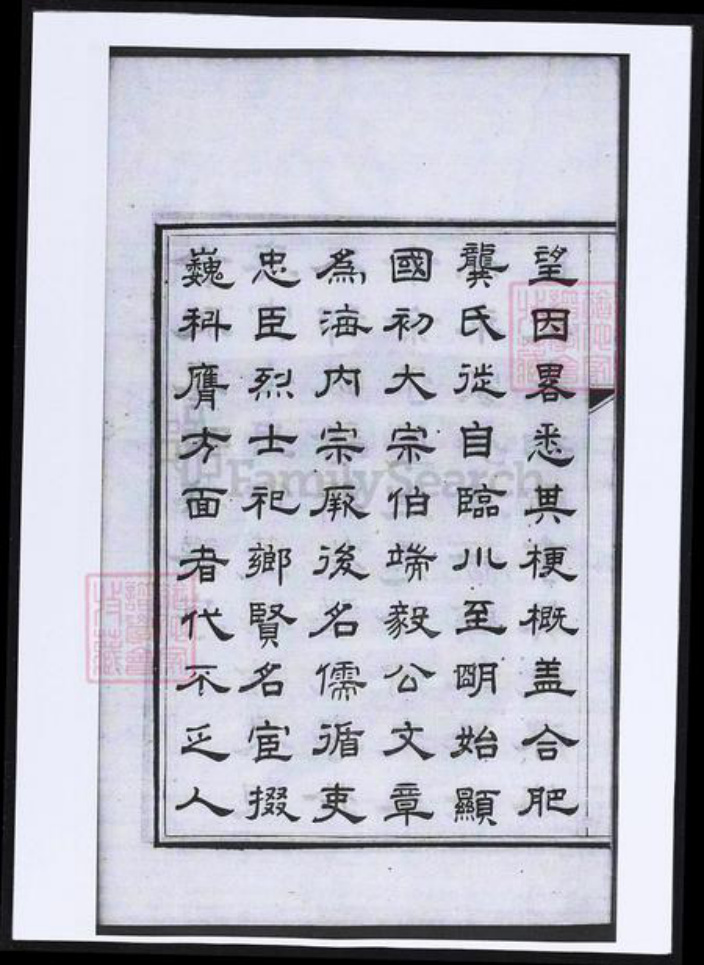 望因畧悉其梗概蓋合肥
龔氏從自臨川至明始顯
國初大宗伯端毅公文章
為海內宗厥後名儒循吏
忠臣烈士祀鄉賢名宦掇
巍科膺方面者代不乏人
FamilySearch